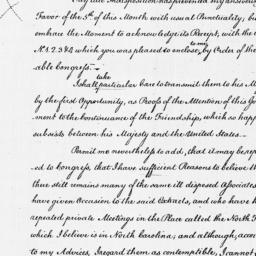 Indisposition has prevented my answering
Favor of the 5th of this Month with usual Punctuality, bu
embrace the Moment to acknowledge its Receipt, with the
No. 1. 2. 3 & 4 which you was pleased to enclose, to me by Order of the
able Congress.
I shall take particular Care to transmit them to his M
by the first Opportunity, as Proofs of the Attention of this Go
ment to the Continuance of the Friendship, which so happ
subsists between his Majesty and the United States.
Permit me nevertheless to add, that it may be rep
ed to Congress, that I have sufficient Reasons to believe th
there still remains many of the same ill disposed Associates
have given Occasion to the said Extracts, and who have
repeated private Meetings in the Place called the North F
which I believe is in North Carolina; and although, acco
to my Advices, I regard them as contemptible, I cannot